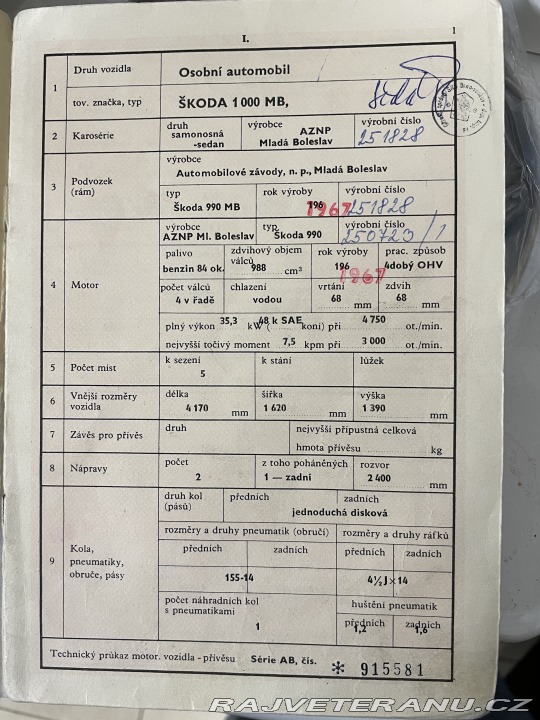 I.
1
1
Druh vozidla
Osobní automobil
tov. značka, typ
ŠKODA 1000 MB,
2
Karosérie
druh
samonosná
-sedan
výrobce
AZNP
Mladá Boleslav
výrobní číslo
251828
3
Podvozek
(rám)
výrobce
Automobilové závody, n. p., Mladá Boleslav
typ
Škoda 990 MB
rok výroby
196
1967
výrobní číslo
251828
4
Motor
výrobce
AZNP Ml. Boleslav
typ
Škoda 990
výrobní číslo
250723/1
palivo
benzin 84 ok.
zdvihový objem
válců
988 cm³
rok výroby
196
1967
prac. způsob
4dobý OHV
počet válců
4 v řadě
chlazení
vodou
vrtání
68 mm
zdvih
68 mm
plný výkon 35,3 kW (48 k SAE koní) při 4 750 ot./min.
nejvyšší točivý moment 7,5 kpm při 3 000 ot./min.
5
Počet míst
k sezení
5
k stání
lůžek
6
Vnější rozměry
vozidla
délka
4 170 mm
šířka
1 620 mm
výška
1 390 mm
7
Závěs pro přívěs
druh
nejvyšší přípustná celková
hmota přívěsu kg
8
Nápravy
počet
2
z toho poháněných
1 — zadní
rozvor
2 400 mm
9
Kola,
pneumatiky,
obruče, pásy
druh kol
(pásů)
předních
zadních
jednoduchá disková
rozměry a druhy pneumatik (obručí)
předních
zadních
155-14
rozměry a druhy ráfků
předních
zadních
4½ J×14
počet náhradních kol
s pneumatikami
1
huštění pneumatik
předních
1,2
zadních
1,6
Technický průkaz motor. vozidla - přívěsu Série AB, čís. * 915581
RAJVETERANU.CZ